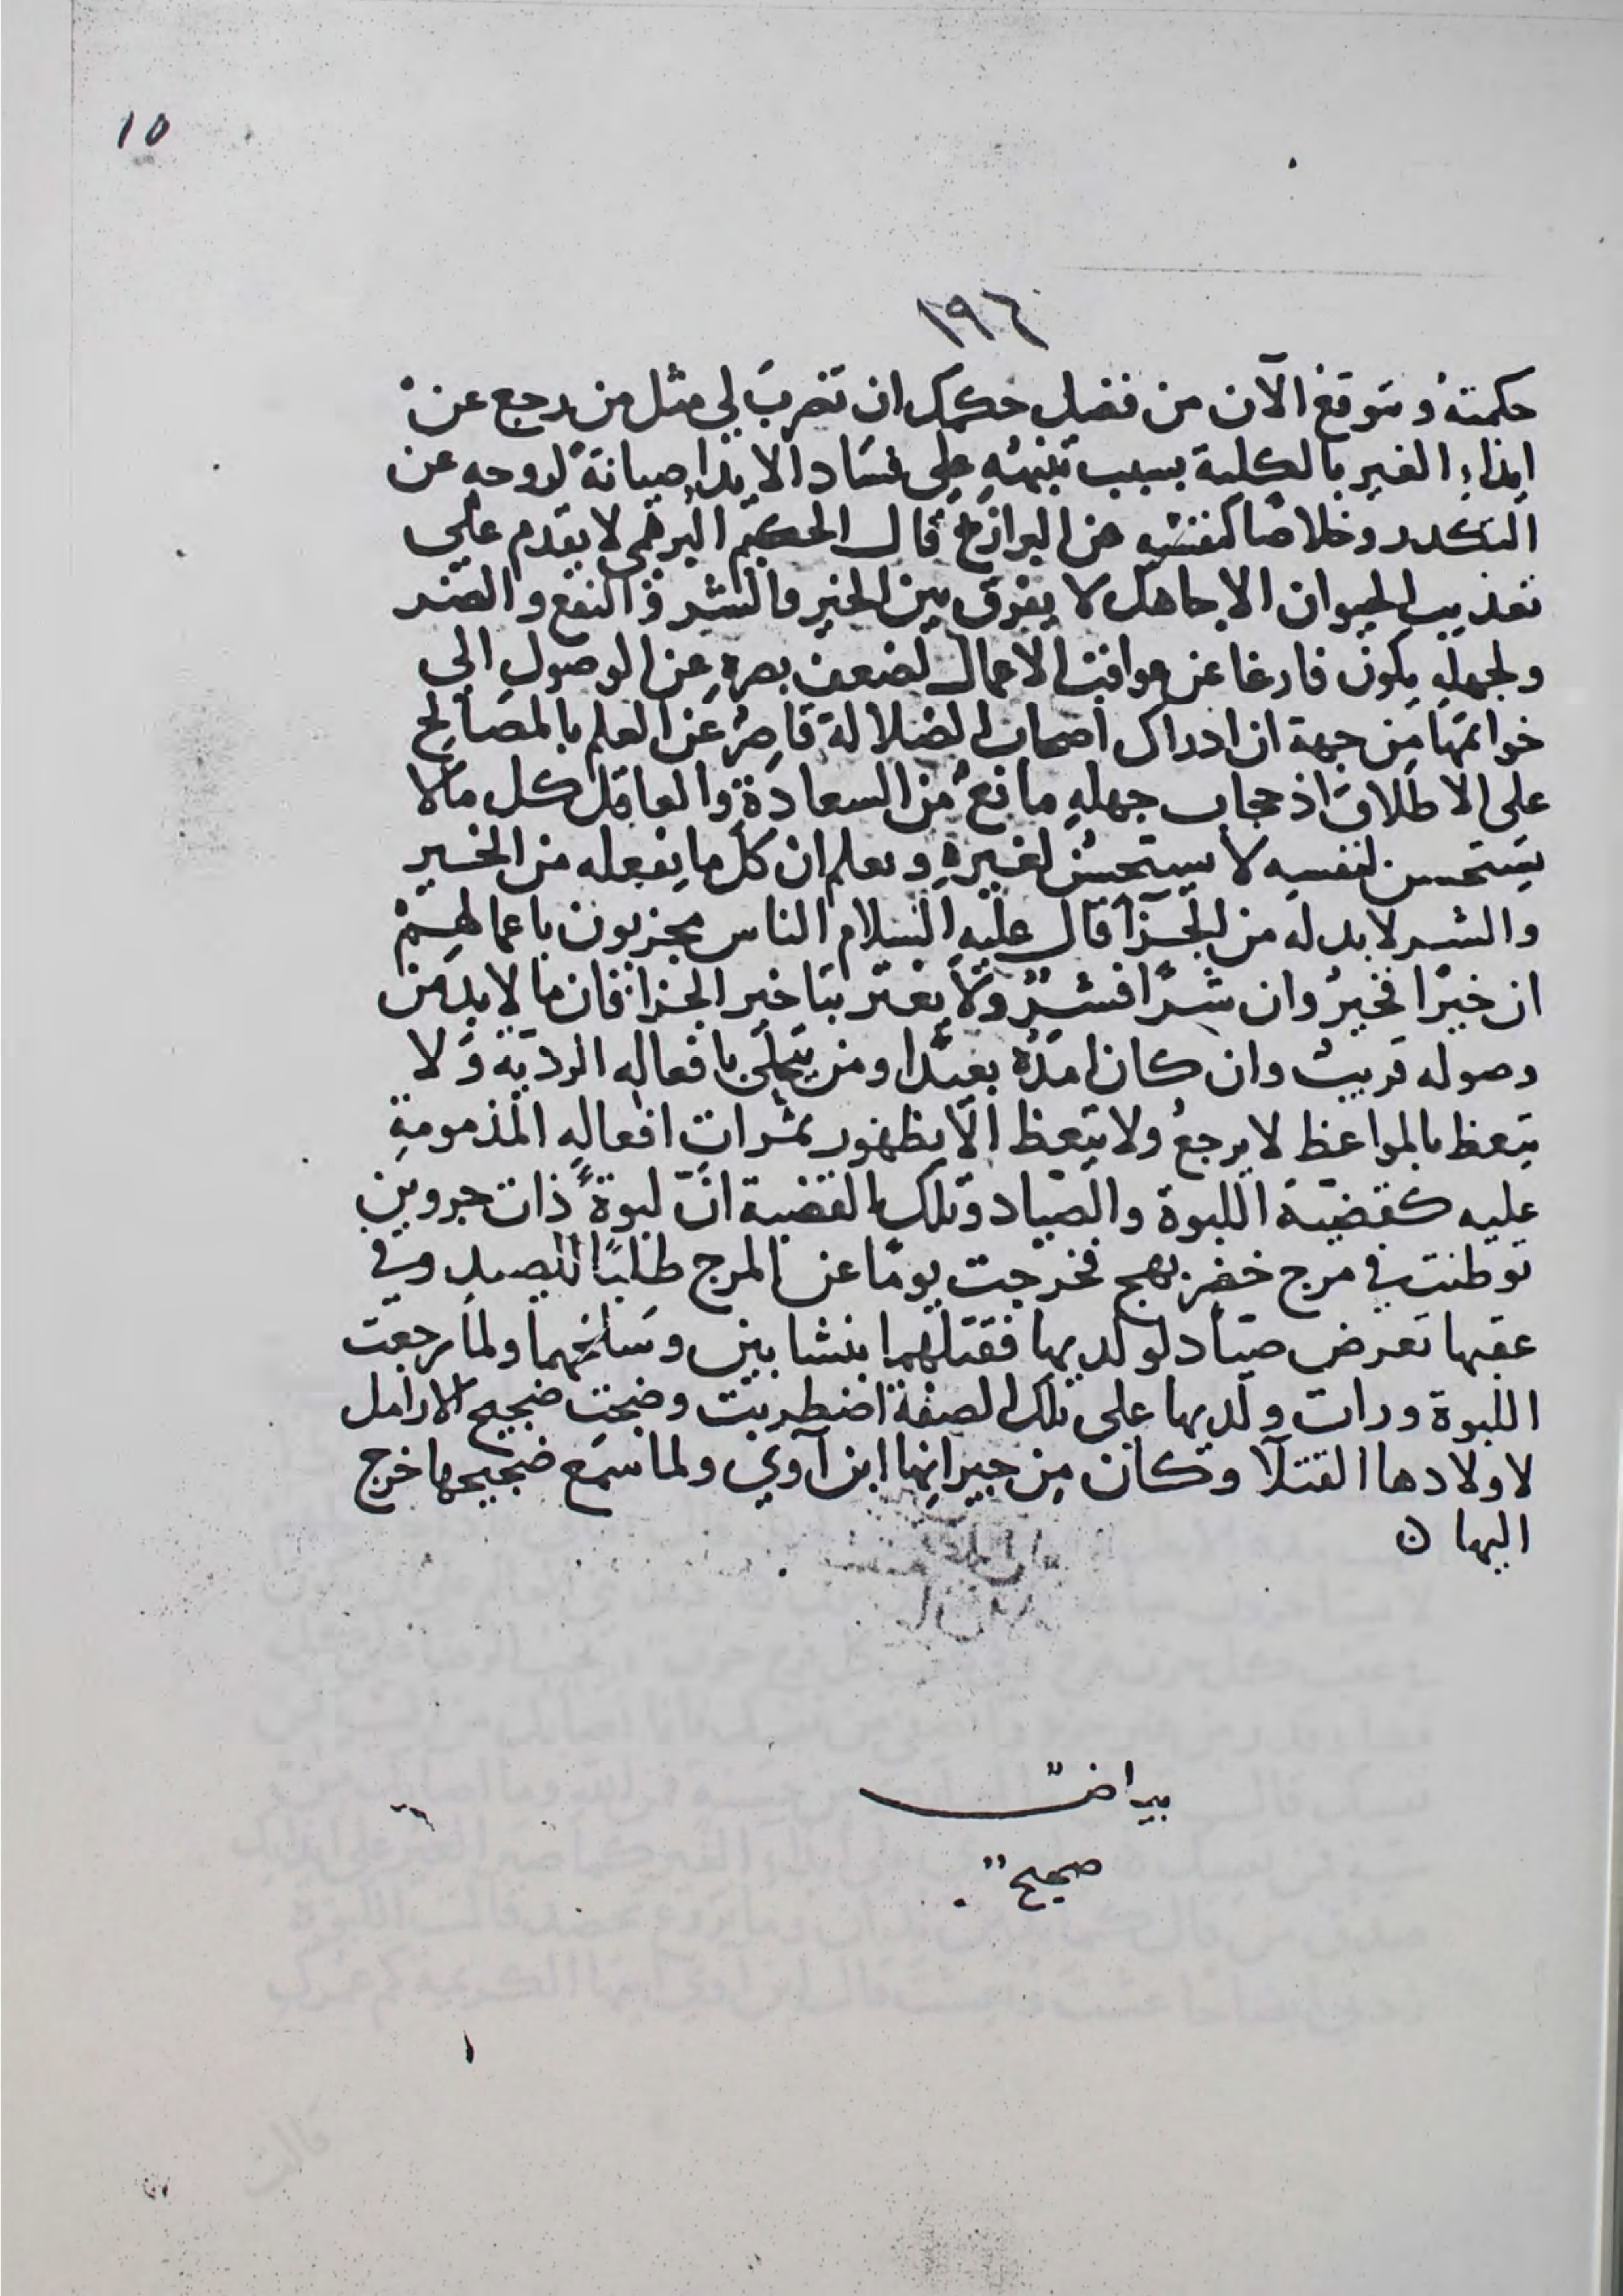 ١٥
١٩٦
حكمته ونتوقع الآن من فضل حكمك ان تضربَ لي مثل من رجع عنْ
ايذاءِ الغير بالكلية بسبب تنبهه على فسَاد الايذاء صيانةً لروحه عن
التكدر وخلاصًا لنفسه من البرازخ قال الحكيم البرهمي لا يقدم على
تعذيب الحيوان الا جاهل لا يفرق بين الخير والشر والنفع والضر
ولجهله يكون فارغا عن عواقب الاعمال لضعف بصره عن الوصول الى
خواتمها من جهة ان ادراك اصحاب الضلالة قاصرٌ عن العلم بالمصَالح
على الاطلاق اذ حجاب جهله مانعٌ من السعادة والعاقل كل ما لا
يستحسن لنفسه لا يستحسن لغيره ويعلم ان كل ما يفعله من الخير
والشر لا بد له من الجزا قال عليه السلام الناس مجزيون باعمالهمْ
ان خيرًا فخيرٌ وان شرًا فشرٌ ولا يغتر بتاخير الجزا فان ما لا بد من
وصوله قريبٌ وان كان امدُه بعيدًا ومن يتحلى بافعاله الردية وَلا
يتعظ بالمواعظ لا يرجعُ ولا يتعظ الّا بظهور ثمراتِ افعالهِ المذمومةِ
عليه كقضيّة اللبوة والصيّاد وتلك القضية انّ لبوةً ذات جروين
توطنت في مرج خضر بهج فخرجت يومًا عن المرج طلبًا للصيد وفي
عقبها تعرض صيّاد لولديها فقتلهما بنشابين وسَلخهما ولما رجعت
اللبوة ورات ولديها على تلك الصفة اضطربت وضجت ضجيج الارامل
لاولادها القتلا وكان من جيرانها ابن آوي ولما سمع ضجيجها خرج
اليها ن
بياض
صحيح